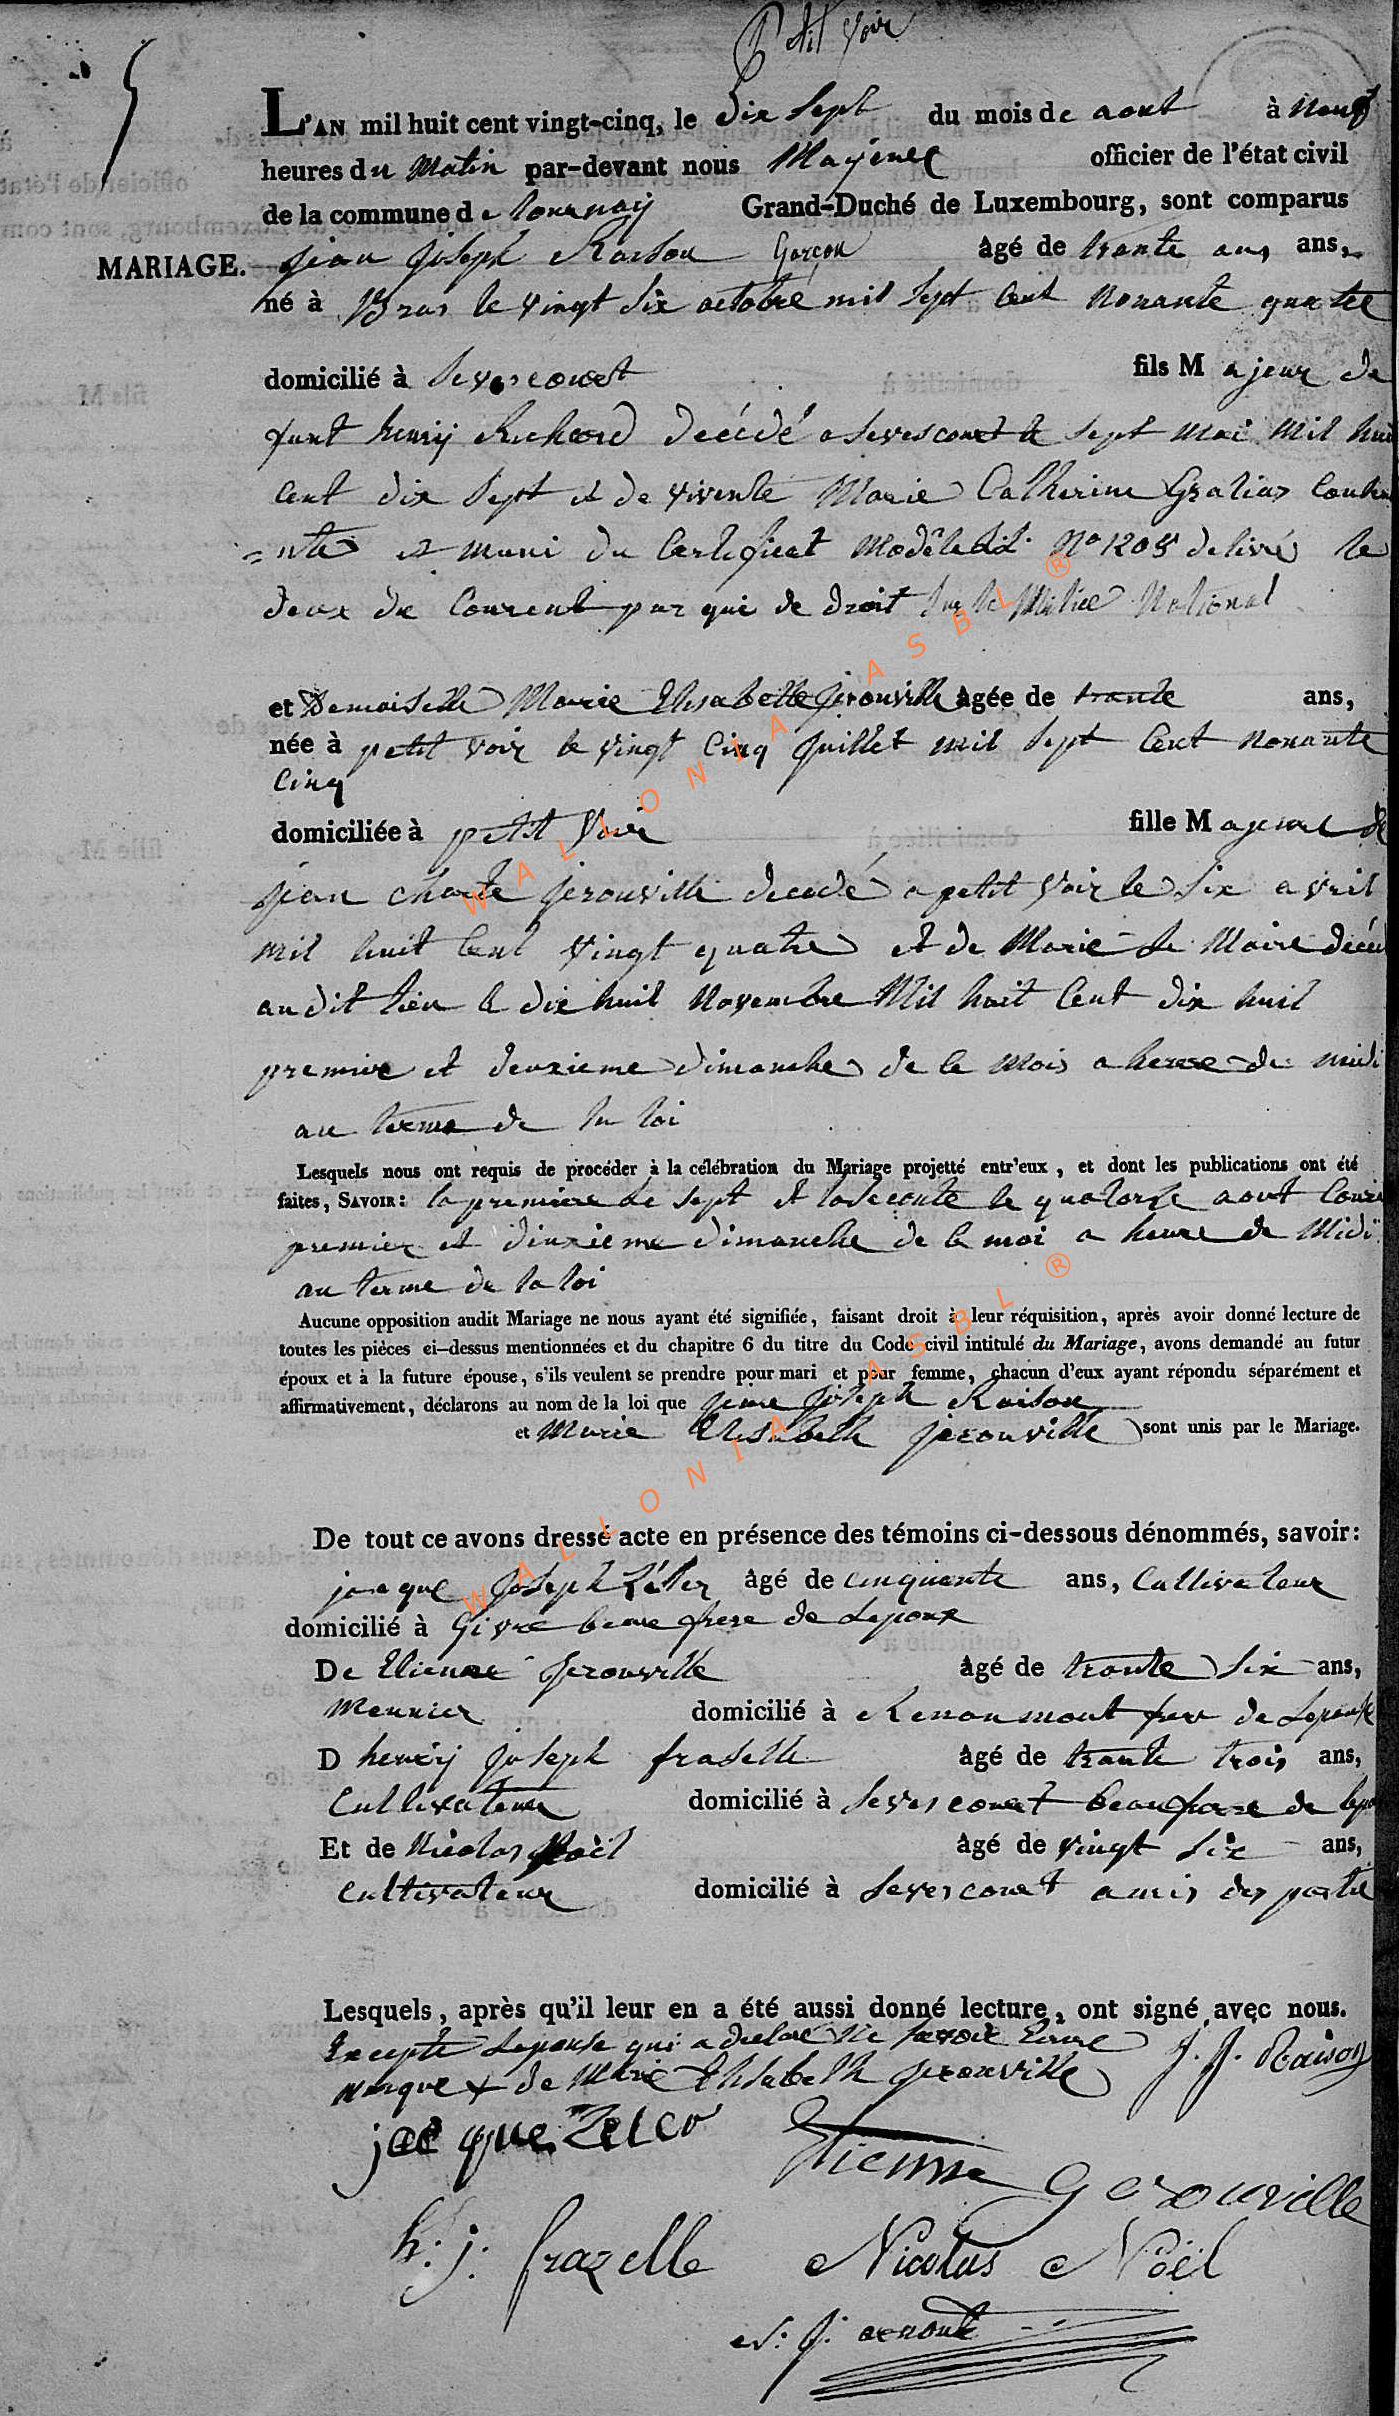 Petit Voir
5
L'AN mil huit cent vingt-cinq, le dix Sept du mois de aout à neuf
heures du Matin par-devant nous officier de l'état civil
de la commune de tournay Grand-Duché de Luxembourg, sont comparus
MARIAGE. jean joseph Raison Garçon âgé de trante ans ans,
né à Bras le vingt Six octobre mil Sept Cent Nonante quatre
domicilié à Sevescourt fils M ajeur de
funt henrij Richard décédé a Sevescourt le Sept mai mil hui
Cent dix Sept et de vivente Marie Catherine Gratias Consen
=nte et muni du Certificat Modèle LL. No 1205 delivré le
deux du Courent par qui de droit Sur la Milice National
et Demoiselle Marie Elisabette jerouville âgée de trante ans,
née à petit voir le vingt Cinq juillet mil Sept Cent nonante
Cinq
domiciliée à petit Voir fille M ajeure de
jean Charle jerouville decedé a petit Voir le Six avril
mil huit Cent vingt quatre et de Marie Le Maire décéd
au dit lieu le dix huit Novembre Mil huit Cent dix huit
premire et deuxieme dimanche de le Mois a heure de midi
au terme de la loi
Lesquels nous ont requis de procéder à la célébration du Mariage projetté entr'eux, et dont les publications ont été
faites, SAVOIR: la premiere le Sept et la Seconte le quatorze aout Coure
premier et deuxieme dimanche de le moi a heure de Midi
au terme de la loi
Aucune opposition audit Mariage ne nous ayant été signifiée, faisant droit à leur réquisition, après avoir donné lecture de
toutes les pièces ci-dessus mentionnées et du chapitre 6 du titre du Code civil intitulé du Mariage, avons demandé au futur
époux et à la future épouse, s'ils veulent se prendre pour mari et pour femme, chacun d'eux ayant répondu séparément et
affirmativement, déclarons au nom de la loi que joseph Raison
et Marie Elisabeth jerouville sont unis par le Mariage.
De tout ce avons dressé acte en présence des témoins ci-dessous dénommés, savoir:
jacque Joseph âgé de cinquante ans, Cultivateur
domicilié à Givré beau frere de Lepoux
De Etienne Jerouville âgé de trante Six ans,
Meunier domicilié à Renaumont frere de Lepouse
D henrij joseph fraselle âgé de trante trois ans,
Cultivateur domicilié à Sevescourt beaufrere de lepo
Et de Nicolas Noël âgé de vingt Six ans,
Cultivateur domicilié à Sevescourt amis des partie
Lesquels, après qu'il leur en a été aussi donné lecture, ont signé avec nous.
Excepte Lepouse qui a declaré ne savoir Ecrire
Marque + de Marie Elisabeth jerouville J. J. Raison
jacque
Etienne Gerouville
h: j. frazelle Nicolas Noël
WALLONIA ASBL ®
WALLONIA ASBL ®